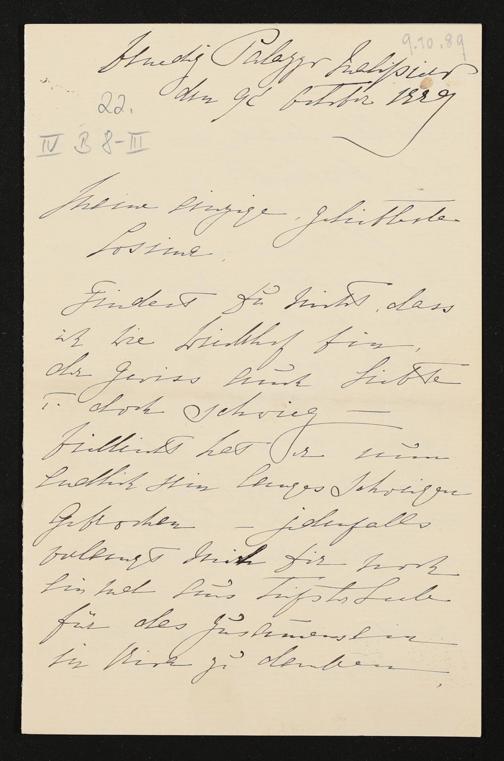 9.10.89
Venedig Palazzo Malipiero
den 9t October 1889
22.
IV B 8-III
Meine einzige, geliebteste
Cosima,
Findest Du nicht, dass
ich wie bin,
der gewiss auch liebte
u. doch schwieg —
vielleicht hat er nun
endlich sein langes Schweigen
gebrochen — jedenfalls
verlangt mich Dir noch
einmal aus tiefster Seele
für das Zusammensein
in zu danken,